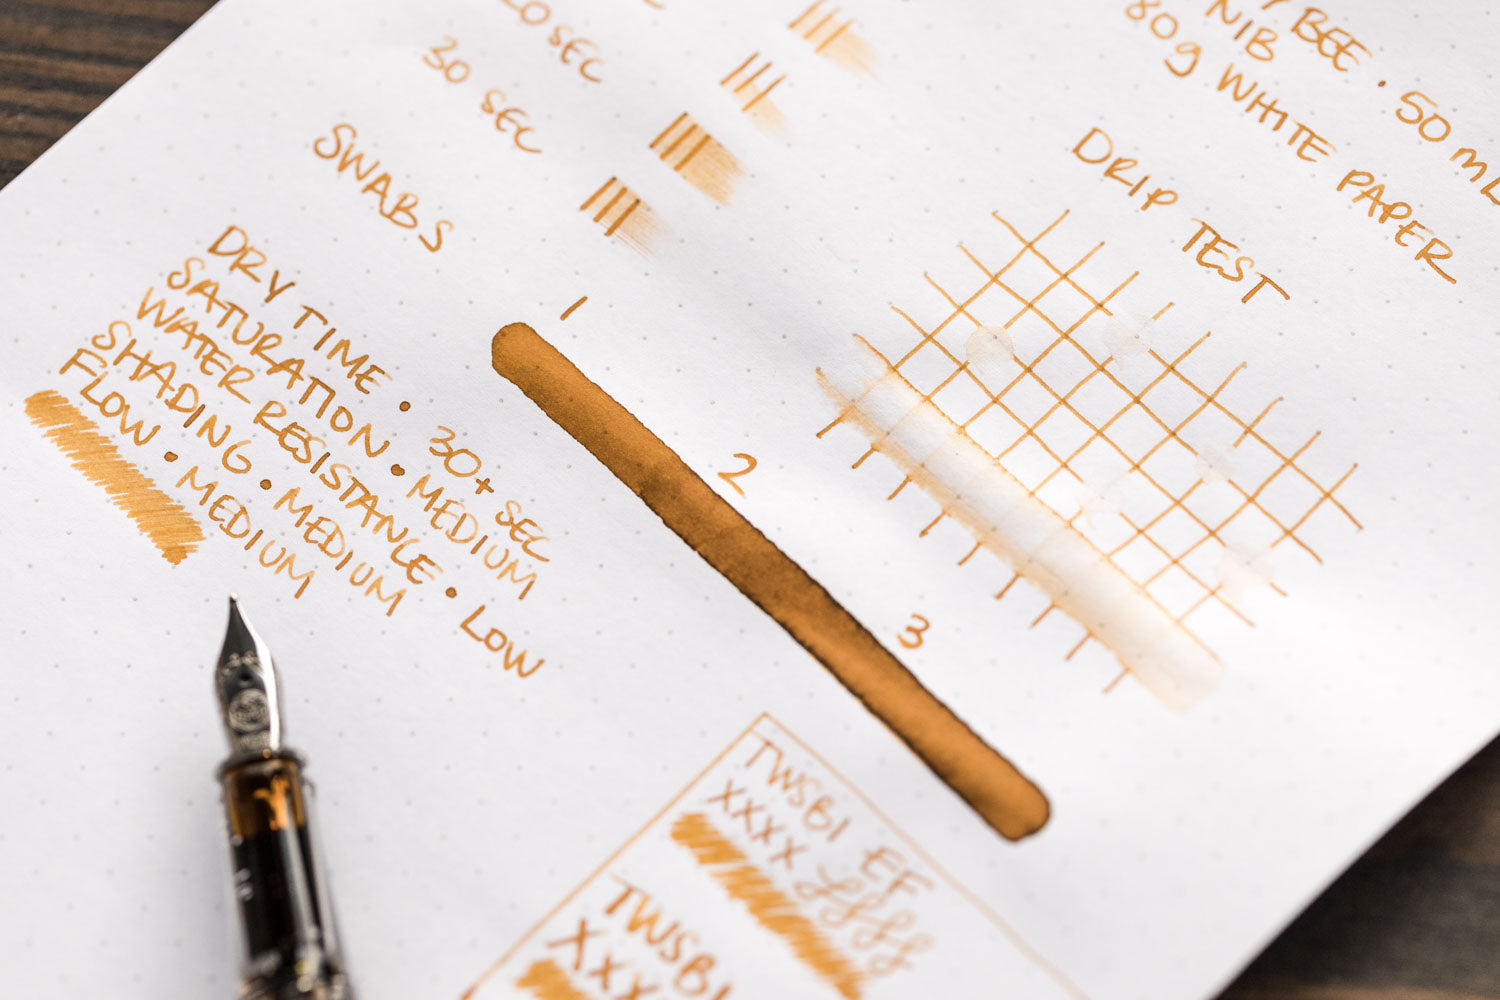 BEE • 50 mL
NIB
80g WHITE PAPER
20 SEC
30 SEC
SWABS
1
2
3
DRIP TEST
DRY TIME • 30+ SEC
SATURATION • MEDIUM
WATER RESISTANCE • LOW
SHADING • MEDIUM
FLOW • MEDIUM
TWSBI EF
XXXX
TWSBI
XXX